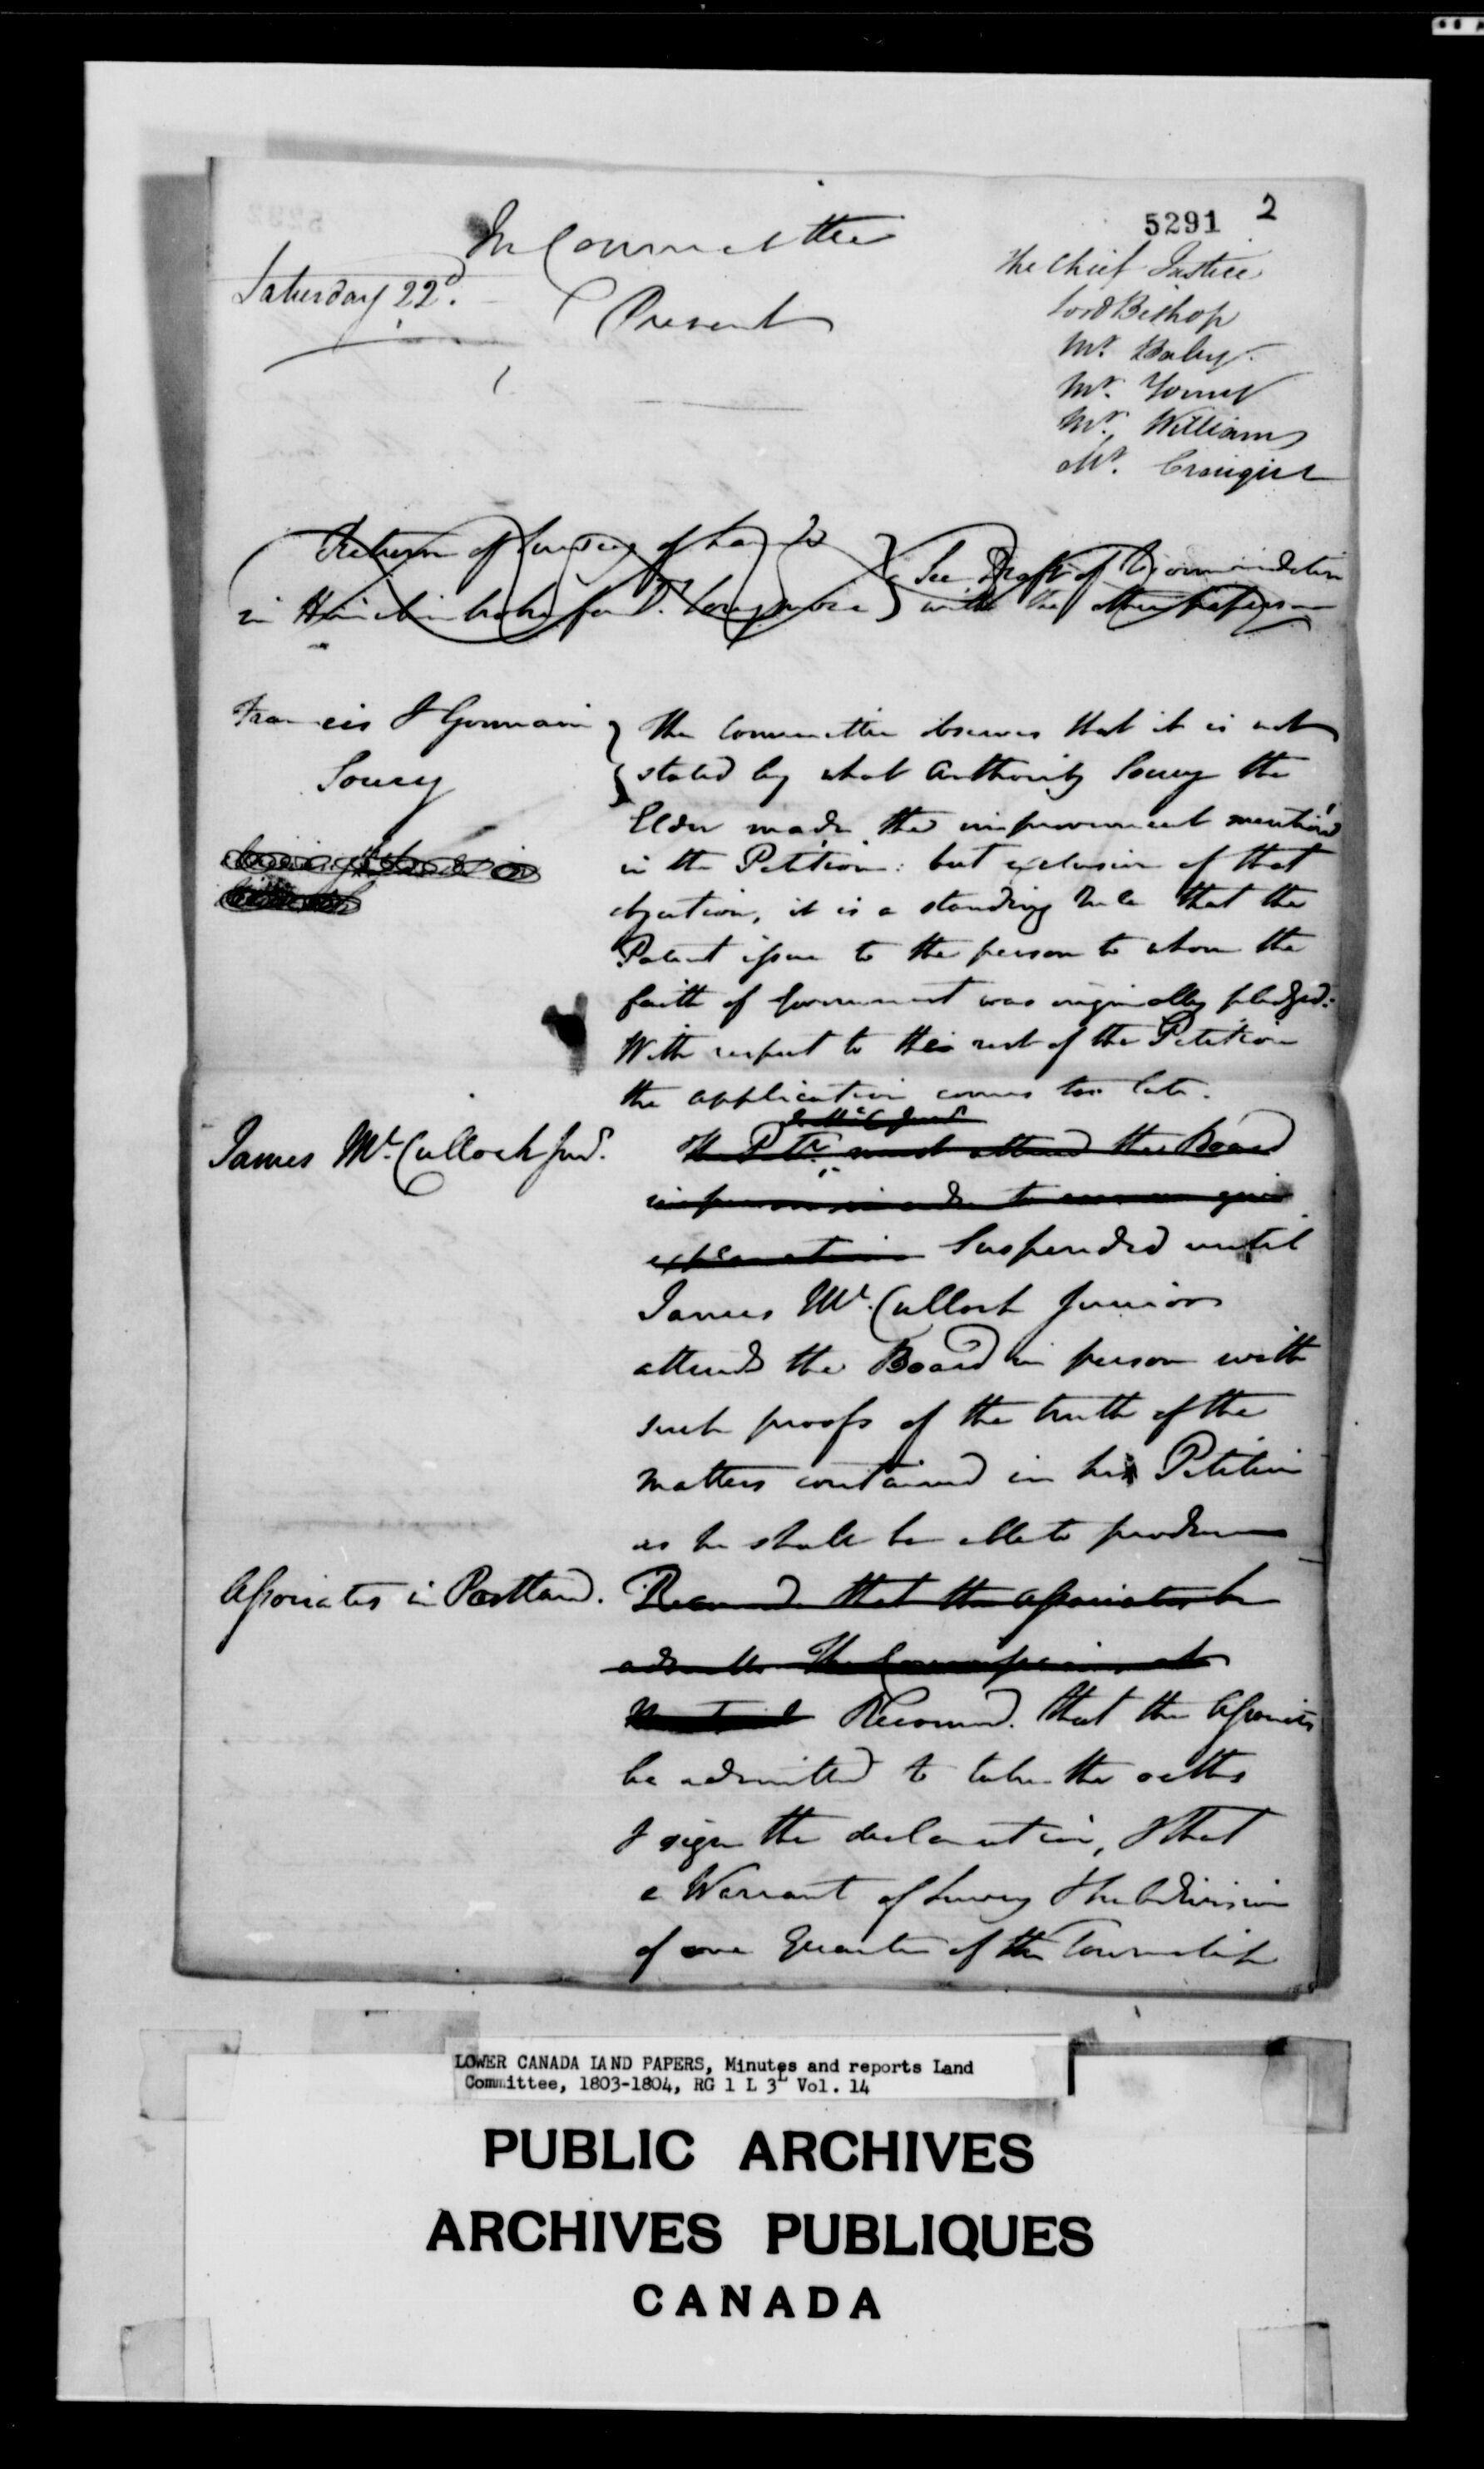 5291 2
In Committee
Saturday 22d.
Present
The Chief Justice
Lord Bishop
Mr. Baby.
Mr. Young
Mr. Williams
Mr. Craigie
Return of Survey of Lands
in Hinchinbroke for
See Draft of Recommendation
with the other papers
Francis & Germain
Soucy
The Committee observes that it is not
stated by what Authority Soucy the
Elder made the improvement mention'd
in the Petition: but exclusive of that
objection, it is a standing rule that the
Patent issue to the person to whom the
faith of Government was originally pledged:
With respect to the rest of the Petition
the application comes too late.
James Mc.Culloch Junr.
J. McC Junr
The Petr. must attend the Board
in person in order to give
explanation Suspended until
James Mc.Culloch Junior
attends the Board in person with
such proofs of the truth of the
matters contained in his Petition
as he shall be able to produce
Associates in Portland.
Recomd. that the Associates be
admitted The Commissioners at
Montreal Recommd. that the Associates
be admitted to take the oaths
& sign the declaration, & that
a Warrant of Survey & Subdivision
of one Quarter of the Township
LOWER CANADA LAND PAPERS, Minutes and reports Land
Committee, 1803-1804, RG 1 L 3L Vol. 14
PUBLIC ARCHIVES
ARCHIVES PUBLIQUES
CANADA